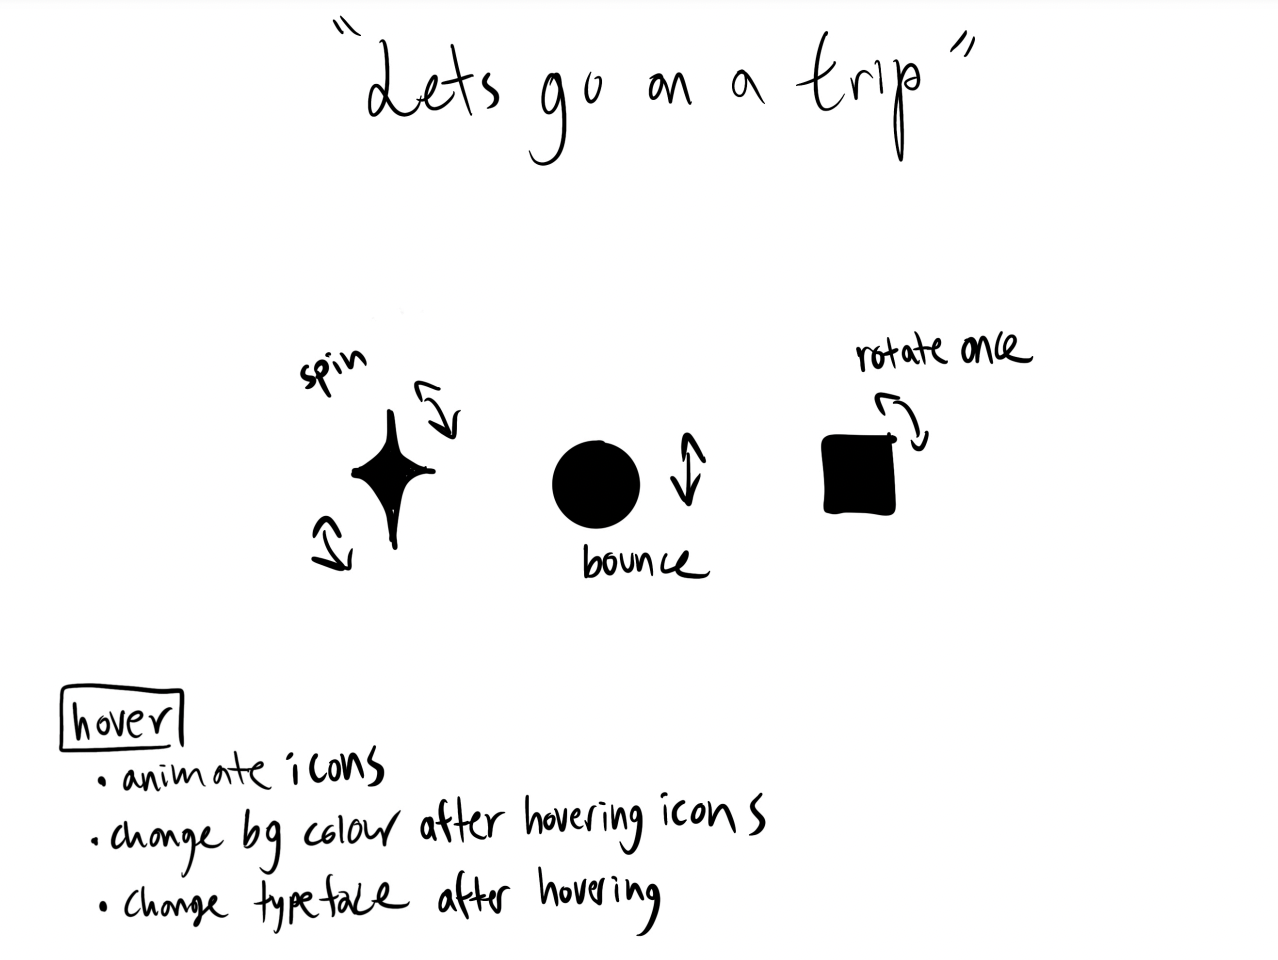 "Lets go on a trip"
spin
rotate once
bounce
hover
• animate icons
• change bg colour after hovering icons
• change typeface after hovering